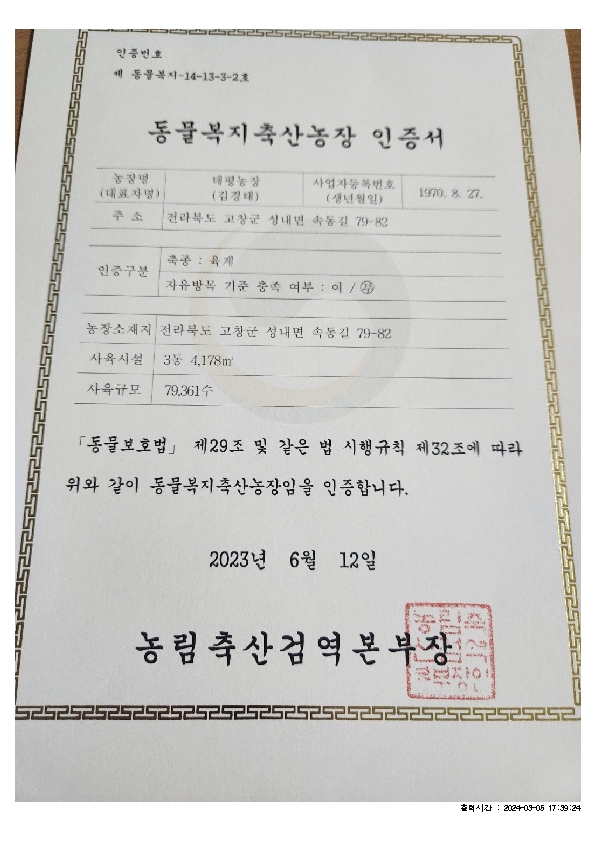 인증번호
제 동물복지-14-13-3-2호
동물복지축산농장 인증서
농장명
(대표자명)
태평농장
(김경태)
사업자등록번호
(생년월일)
1970. 8. 27.
주 소 전라북도 고창군 성내면 속동길 79-82
인증구분
축종 : 육계
자유방목 기준 충족 여부 : 여 / 부
농장소재지 전라북도 고창군 성내면 속동길 79-82
사육시설 3동 4,178㎡
사육규모 79,361수
「동물보호법」 제29조 및 같은 법 시행규칙 제32조에 따라
위와 같이 동물복지축산농장임을 인증합니다.
2023년 6월 12일
농림축산검역본부장
출력시간 : 2024-03-05 17:39:24